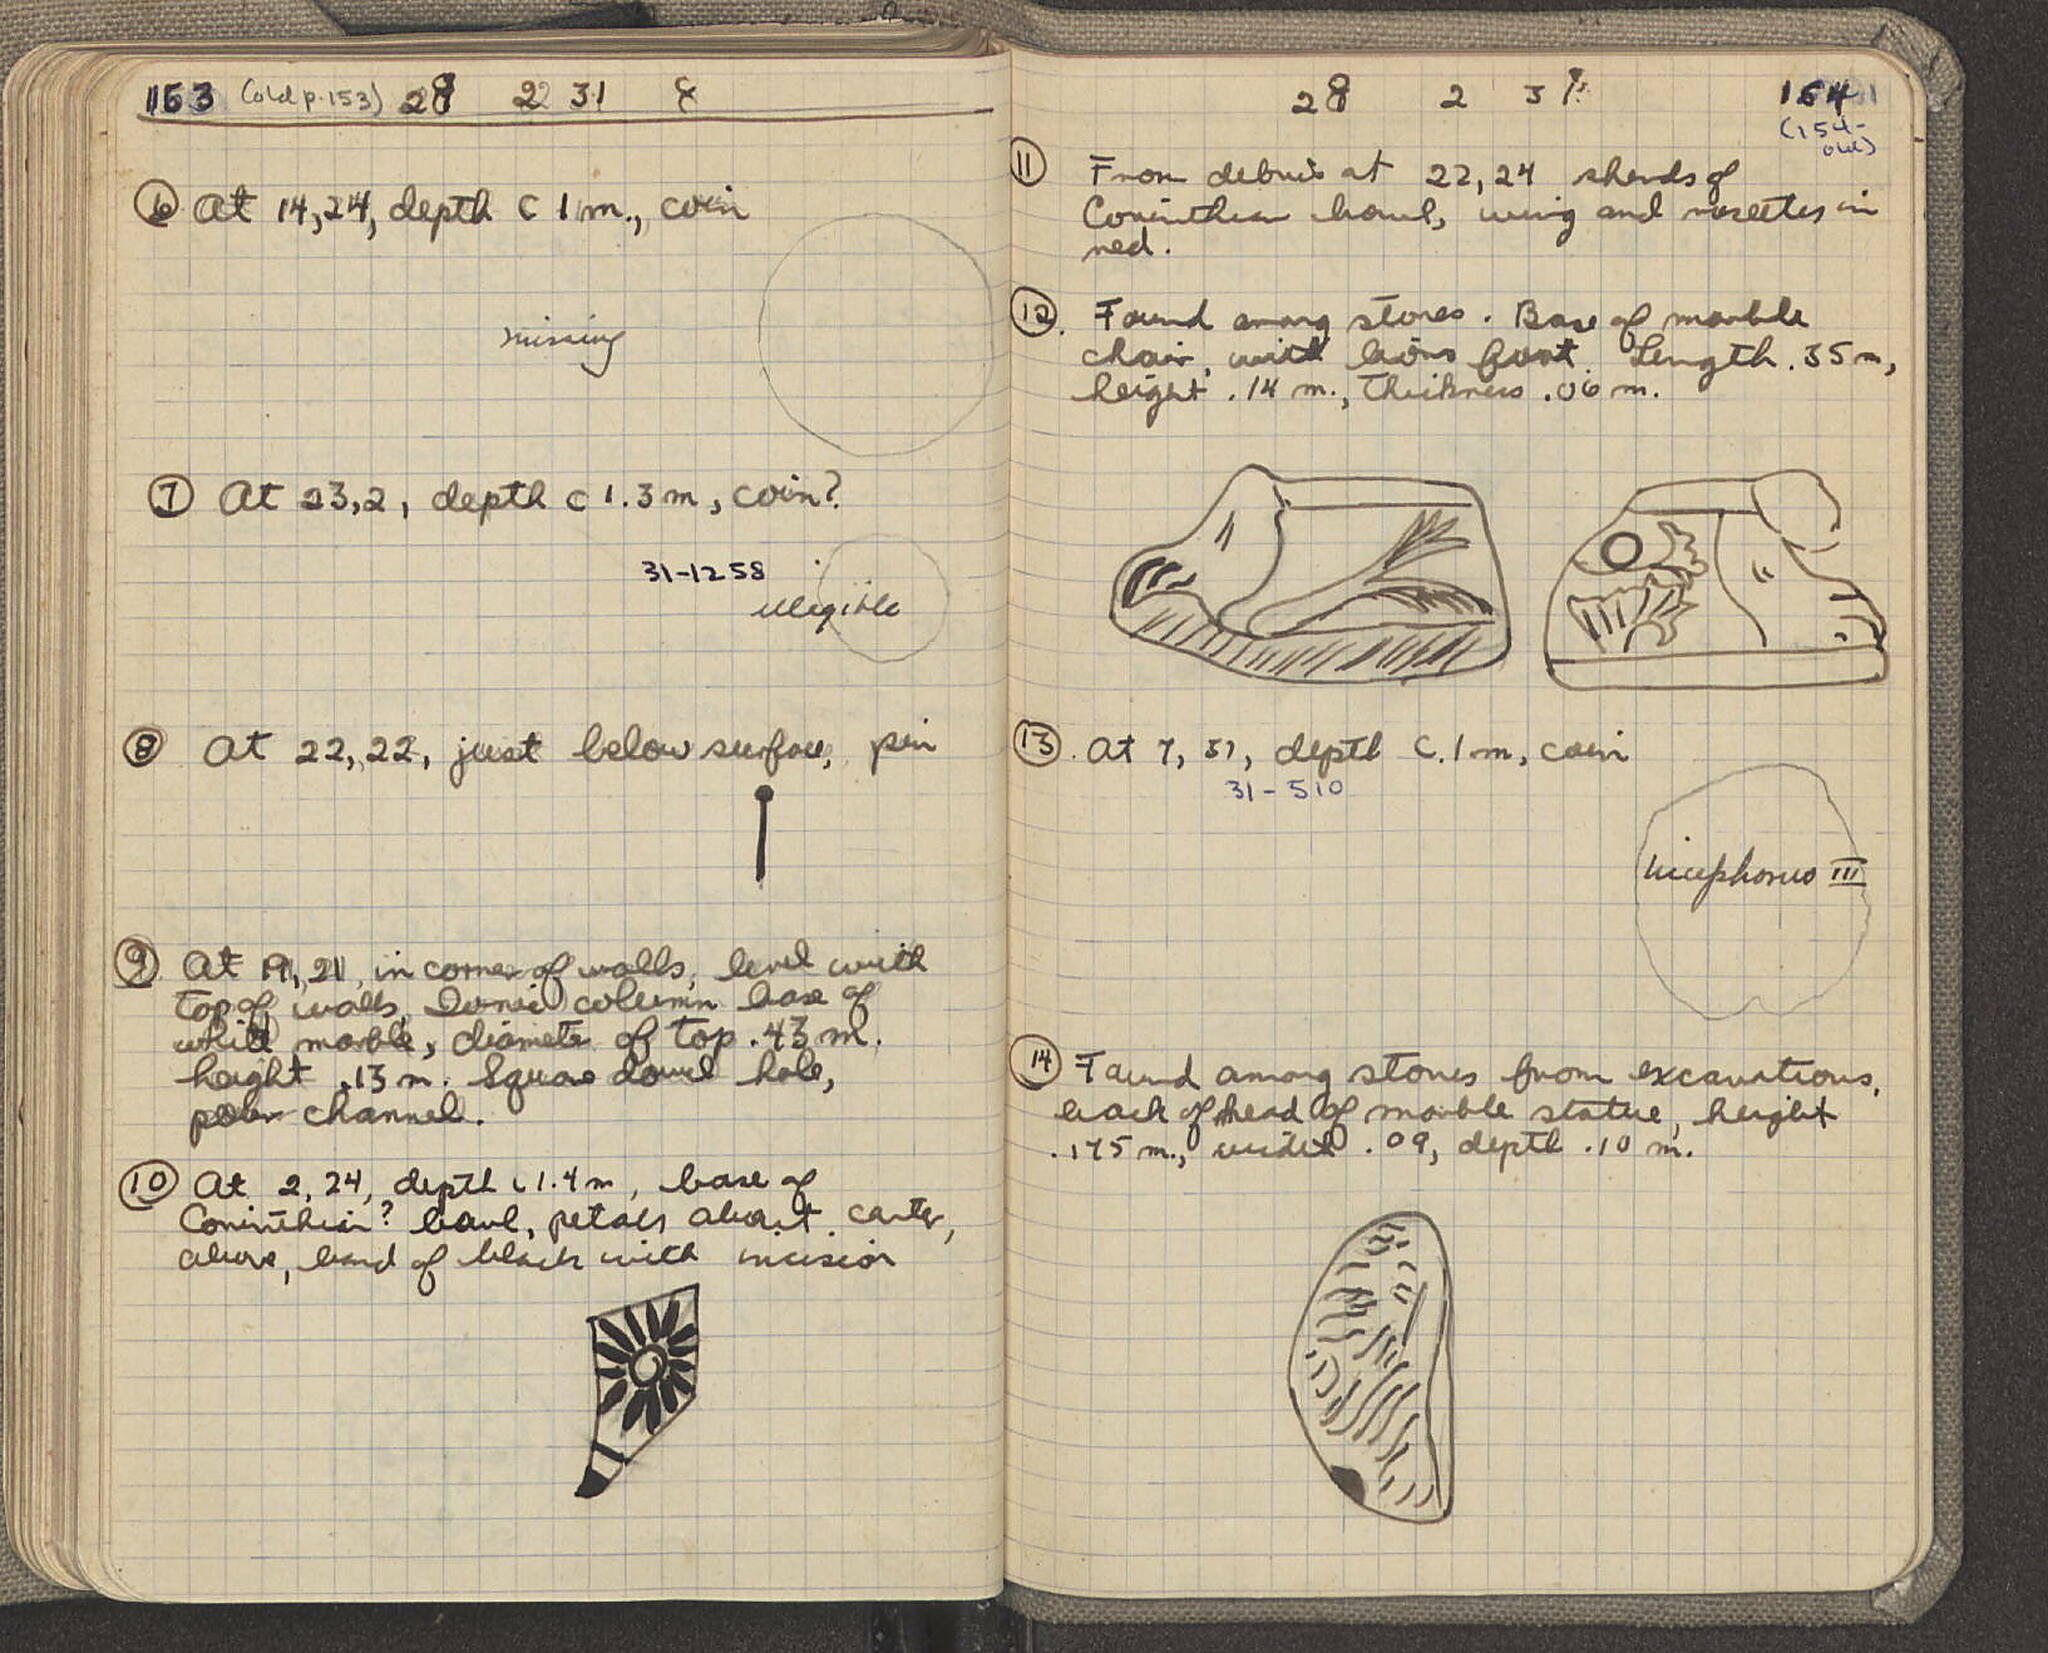 163 (old p. 153) 28 2 31
6 At 14,24, depth c 1 m., coin
missing
7 At 23,2, depth c 1.3 m, coin?
31-1258
illegible
8 At 22,22, just below surface, pin
9 At 19,21, in corner of walls, level with
top of walls, Ionic column base of
white marble, diameter of top .43 m.
height .13 m. Square dowel hole,
channel.
10 At 2,24, depth c 1.4 m, base of
Corinthian? bowl, petals about center,
above, band of black with incision
28 2 31 164
(154-
old)
11 From debris at 22,24 sherds of
Corinthian bowl, wing and rosettes in
red.
12. Found among stones. Base of marble
chair, with lion's foot. Length .35 m,
height .14 m., thickness .06 m.
13. At 7, 31, depth c. 1 m, coin
31-510
Nicephorus III
14 Found among stones from excavations,
back of head of marble statue, height
.175 m., width .09, depth .10 m.